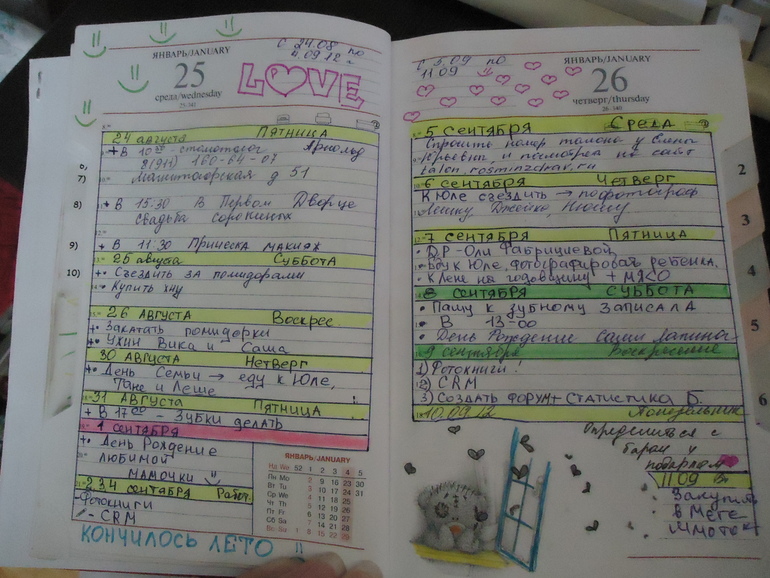 ЯНВАРЬ/JANUARY
25
среда/wednesday
С 24.08 по
4.09.12 г.
LOVE
24 августа Пятница
+ В 10 стоматолог Арнольд
8(911) 160-64-07
7) Магнитогорская д 51
8) + В 15.30 В Первом Дворце
свадьба Сорокиных
9) + В 11.30 Прическа макияж
25 августа Суббота
10) +• Съездить за помидорами
• Купить хну
26 Августа Воскрес.
+• Закатать помидорки
+• Ужин Вика и Саша
30 Августа Четверг
+• День Семьи → еду к Юле,
Тане и Леше
31 Августа Пятница
+ В 17 00 - Зубки делать
1 сентября
+• День Рождение
любимой
мамочки
2 3 4 сентября Работ.
Фотокниги
- CRM
КОНЧИЛОСЬ ЛЕТО
ЯНВАРЬ/JANUARY
Нд We 52 1 2 3 4 5
Пн Mo 2 9 16 23 30
Вт Tu 3 10 17 24 31
Ср We 4 11 18 25
Чт Th 5 12 19 26
Пт Fr 6 13 20 27
Сб Sa 7 14 21 28
Вс Su 1 8 15 22 29
С 5.09 по
11.09
ЯНВАРЬ/JANUARY
26
четверг/thursday
26-340
5 Сентября Среда
Спросить номер талона у Елены
Юрьевны, и посмотреть на сайт
talon.rosminzdrav.ru
6 сентября Четверг
К Юле съездить → пофотограф
Лешку,
7 сентября Пятница
• ДР-Оли Фабрициевой
• Еду к Юле, фотографировать ребенка.
• К Лене на годовщину + мясо
8 сентября Суббота
• Пашу к зубному записала
• В 13-00
• День Рождение Саши Лапина
9 сентября Воскресение
1) Фотокниги!
2) CRM
3) Создать форум + Статистика Б.
10.09.12 Понедельник
Определиться с
подаркам
11.09 Вт
Закупить
в Меге
2
3
4
5
6